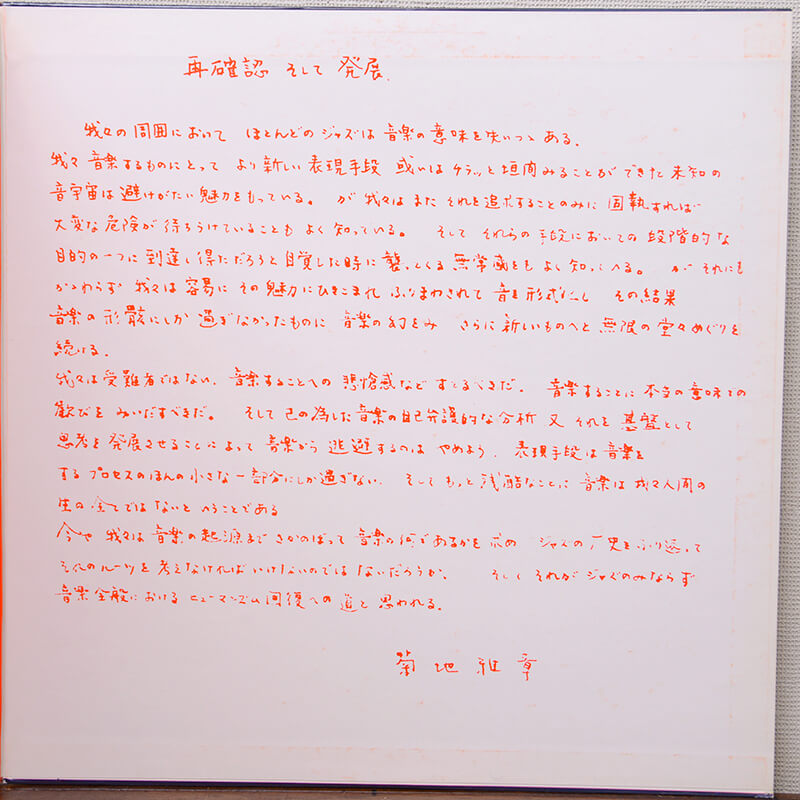 再確認 そして 発展.
我々の周囲において ほとんどのジャズは 音楽の意味を失いつゝある.
我々 音楽するものにとって より新しい表現手段 或いは チラッと垣間みることができた未知の
音宇宙は避けがたい魅力をもっている。 が 我々は また それを追求することのみに 固執すれば
大変な危険が待ちうけていることも よく知っている。 そして それらの手段においての 段階的な
目的の一つに 到達し得ただろうと自覚した時に 襲ってくる 無常感をも よく知っている。 が それにも
かゝわらず 我々は容易に その魅力にひきこまれ ふりまわされて 音を形式化し その結果
音楽の形骸にしか 過ぎなかったものに 音楽の幻をみ さらに新しいものへと 無限の堂々めぐりを
続ける.
我々は受難者ではない. 音楽することへの 悲愴感など すてるべきだ. 音楽することに 本当の意味での
歓びを みいだすべきだ。 そして 己の為した音楽の自己弁護的な分析 又 それを 基盤として
思考を発展させることによって 音楽から 逃避するのは やめよう. 表現手段は音楽を
するプロセスのほんの小さな一部分にしか過ぎない. そして もっと 残酷なことに 音楽は 我々人間の
生の全てではないと いうことである
今や 我々は 音楽の起源まで さかのぼって 音楽の何であるかを求め ジャズの歴史をふり返って
それのルーツを 考えなければいけないのでは ないだろうか. そして それが ジャズのみならず
音楽全般における ヒューマニズム回復への 道と 思われる.
菊地雅章